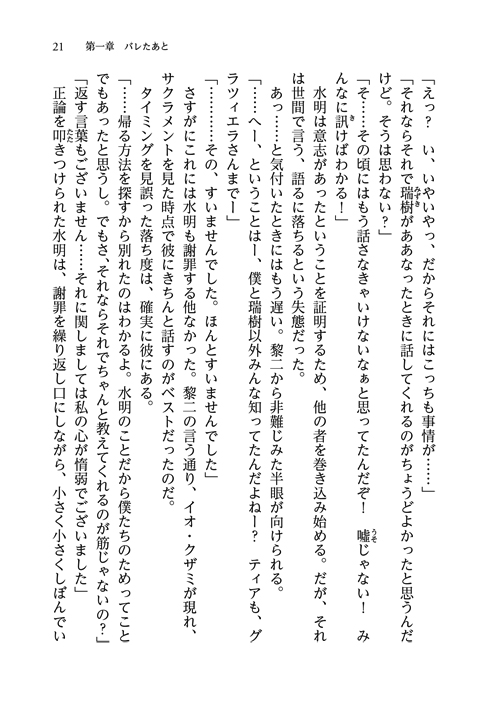 21　第一章　バレたあと
「えっ？　い、いやいやっ、だからそれにはこっちも事情が……」
「それならそれで瑞樹がああなったときに話してくれるのがちょうどよかったと思うんだ
けど。そうは思わない？」
「そ……その頃にはもう話さなきゃいけないなぁと思ってたんだぞ！　嘘じゃない！　み
んなに訊けばわかる！」
　水明は意志があったということを証明するため、他の者を巻き込み始める。だが、それ
は世間で言う、語るに落ちるという失態だった。
　あっ……と気付いたときにはもう遅い。黎二から非難じみた半眼が向けられる。
「……へー、ということはー、僕と瑞樹以外みんな知ってたんだよねー？　ティアも、グ
ラツィエラさんまでー」
「…………その、すいませんでした。ほんとすいませんでした」
　さすがにこれには水明も謝罪する他なかった。黎二の言う通り、イオ・クザミが現れ、
サクラメントを見た時点で彼にきちんと話すのがベストだったのだ。
　タイミングを見誤った落ち度は、確実に彼にある。
「……帰る方法を探すから別れたのはわかるよ。水明のことだから僕たちのためってこと
でもあったと思うし。でもさ、それならそれでちゃんと教えてくれるのが筋じゃないの？」
「返す言葉もございません……それに関しましては私の心が惰弱でございました」
　正論を叩きつけられた水明は、謝罪を繰り返し口にしながら、小さく小さくしぼんでい